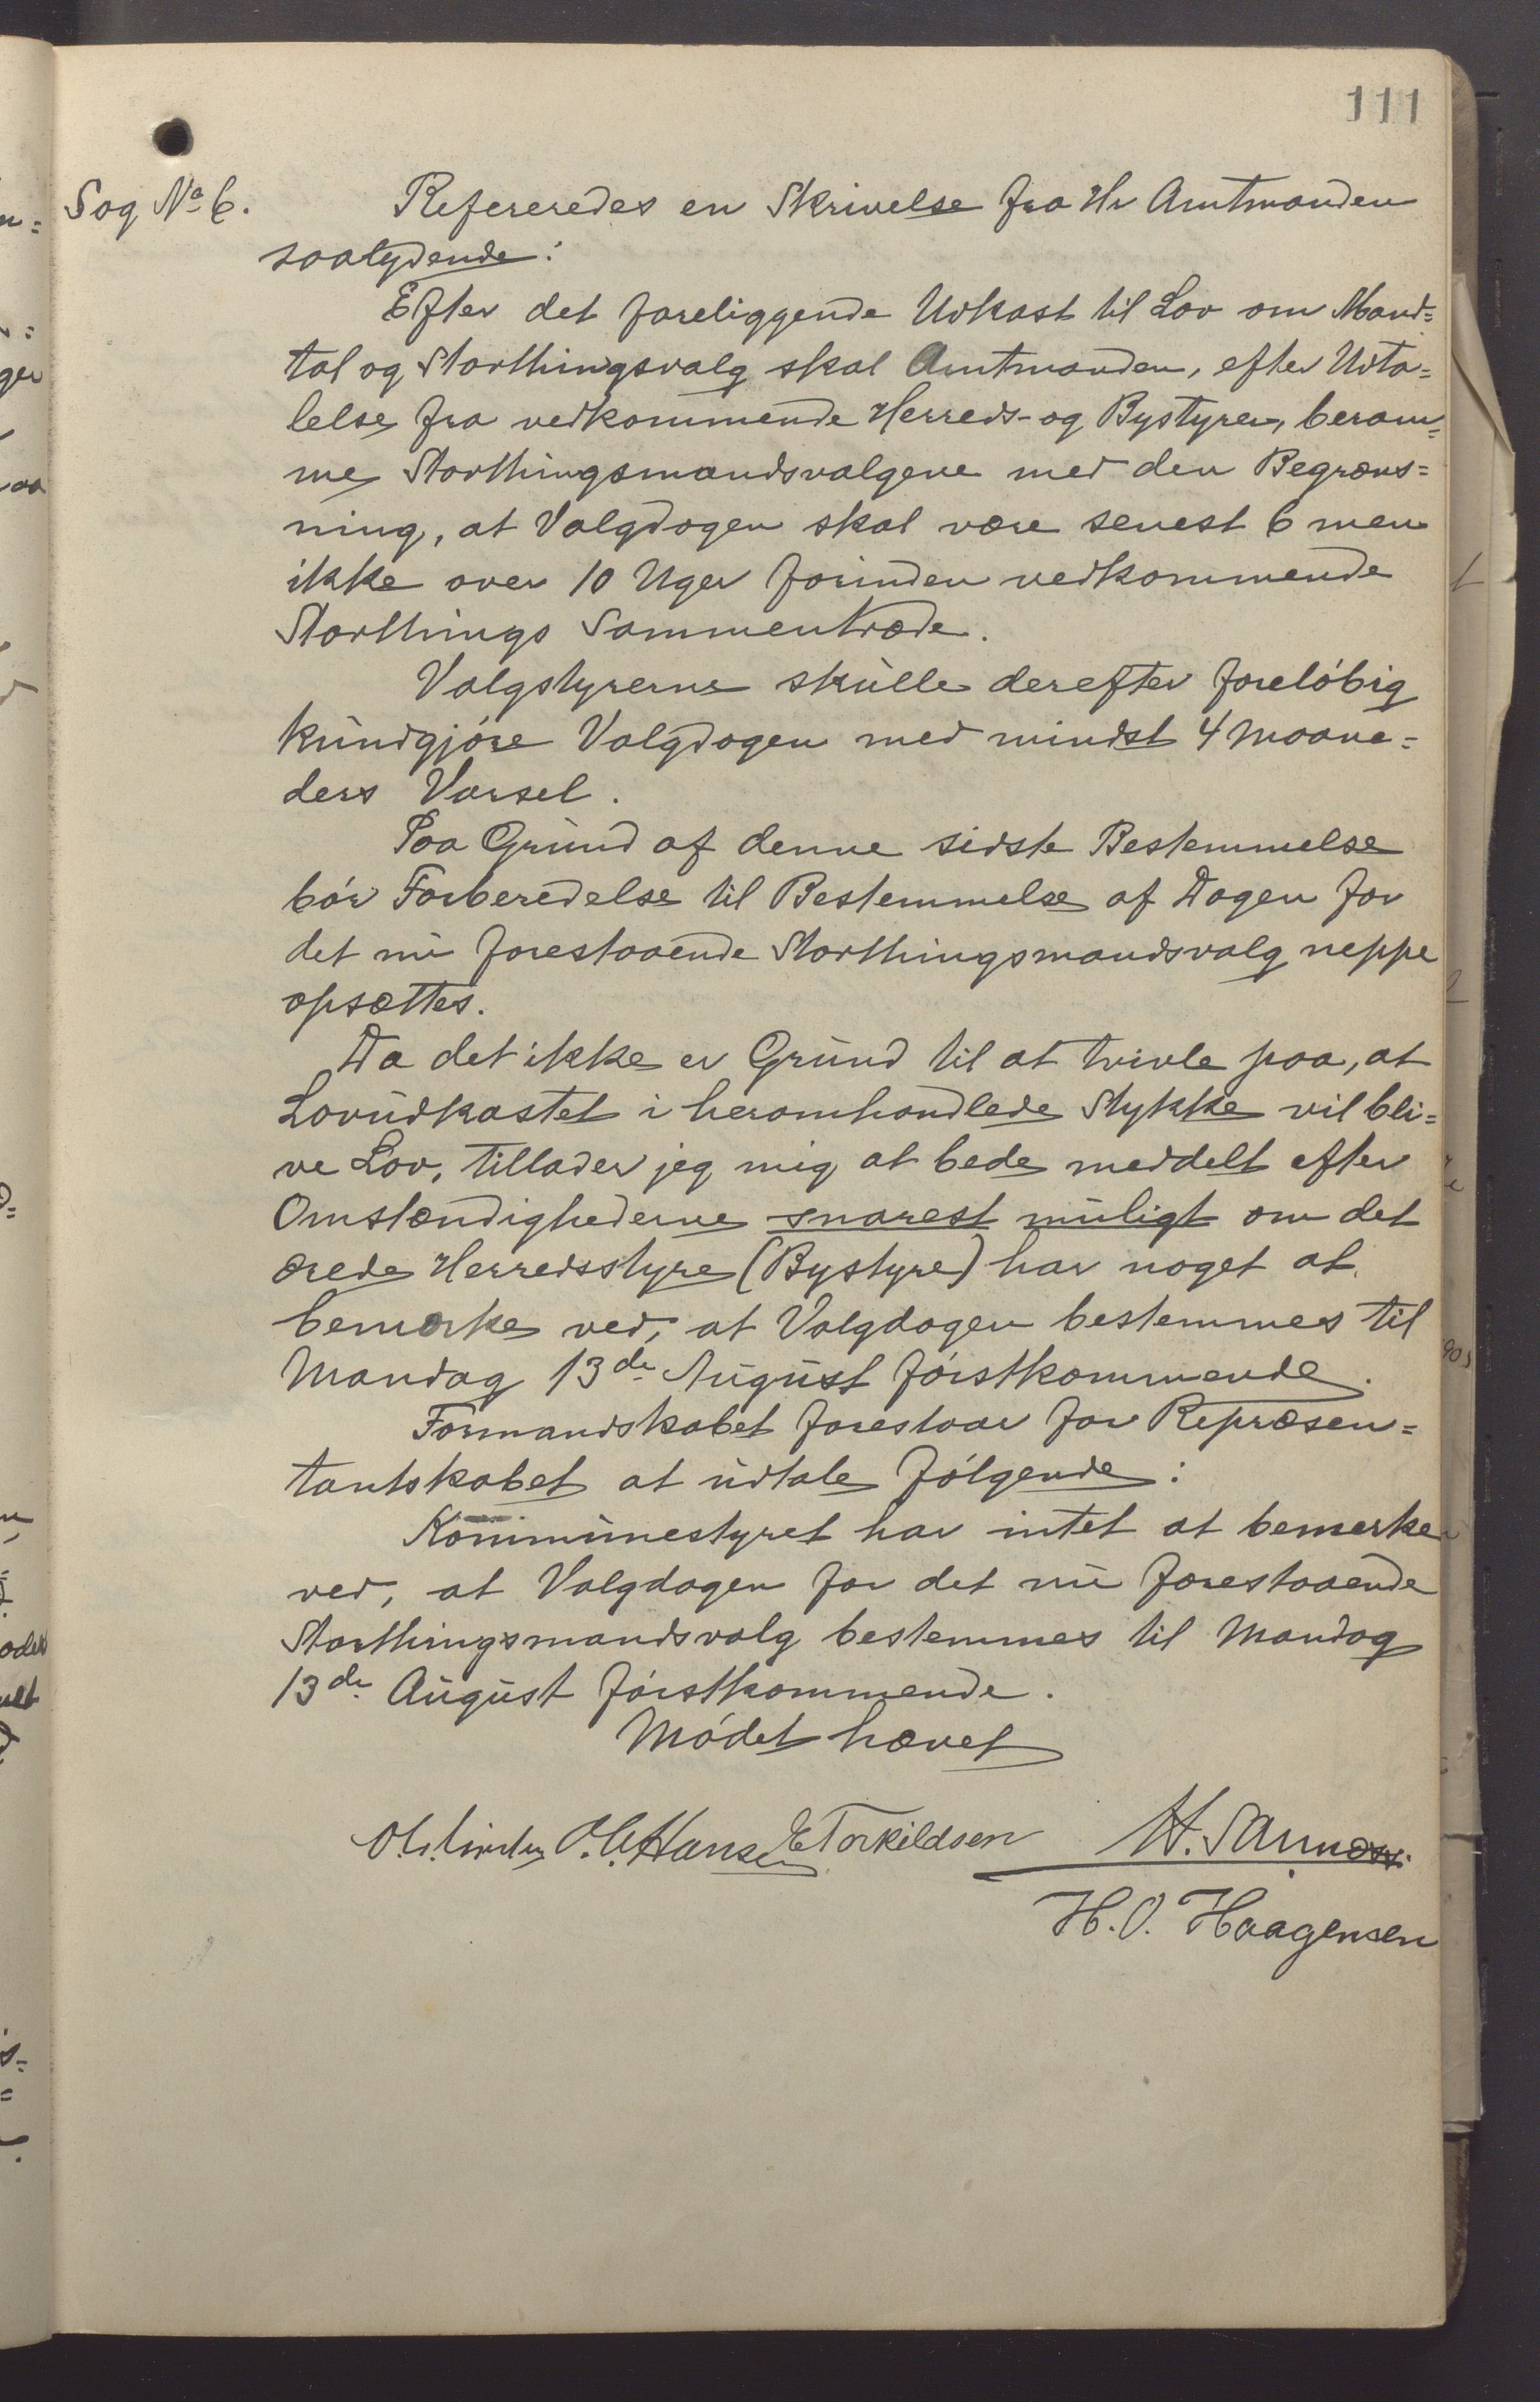 111
Sag No 6.
Refereredes en Skrivelse fra Hr Amtmanden
saalydende:
Efter det foreliggende Udkast til Lov om Mand=
tal og Storthingsvalg skal Amtmanden, efter Udta=
lelse fra vedkommende Herreds- og Bystyrer, beram=
me Storthingsmandsvalgene med den Begræns=
ning, at Valgdagen skal være senest 6 men
ikke over 10 Uger forinden vedkommende
Storthings Sammentræde.
Valgstyrerne skulle derefter foreløbig
kundgjøre Valgdagen med mindst 4 Maane=
ders Varsel.
Paa Grund af denne sidste Bestemmelse
bør Forberedelse til Bestemmelse af Dagen for
det nu forestaaende Storthingsmandsvalg neppe
opsættes.
Da det ikke er Grund til at tvivle paa, at
Lovudkastet i heromhandlede Stykke vil bli=
ve Lov, tillader jeg mig at bede meddelt efter
Omstændighederne snarest muligt om det
ærede Herredsstyre (Bystyre) har noget at
bemærke ved, at Valgdagen bestemmes til
Mandag 13de August førstkommende.
Formandskabet foreslaar for Repræsen=
tantskabet at udtale følgende:
Kommunestyret har intet at bemerke
ved, at Valgdagen for det nu forestaaende
Storthingsmandsvalg bestemmes til Mandag
13de August førstkommende.
Mødet hævet
O. C. Hansen E Torkildsen
H. O. Haagensen